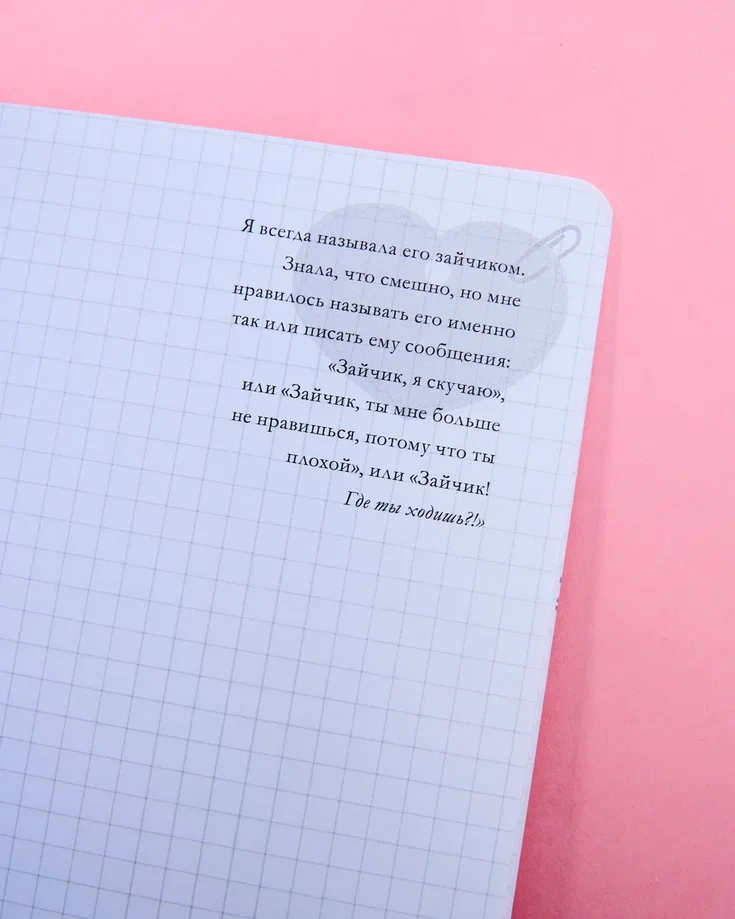 Я всегда называла его зайчиком.
Знала, что смешно, но мне
нравилось называть его именно
так или писать ему сообщения:
«Зайчик, я скучаю»,
или «Зайчик, ты мне больше
не нравишься, потому что ты
плохой», или «Зайчик!
Где ты ходишь?!»